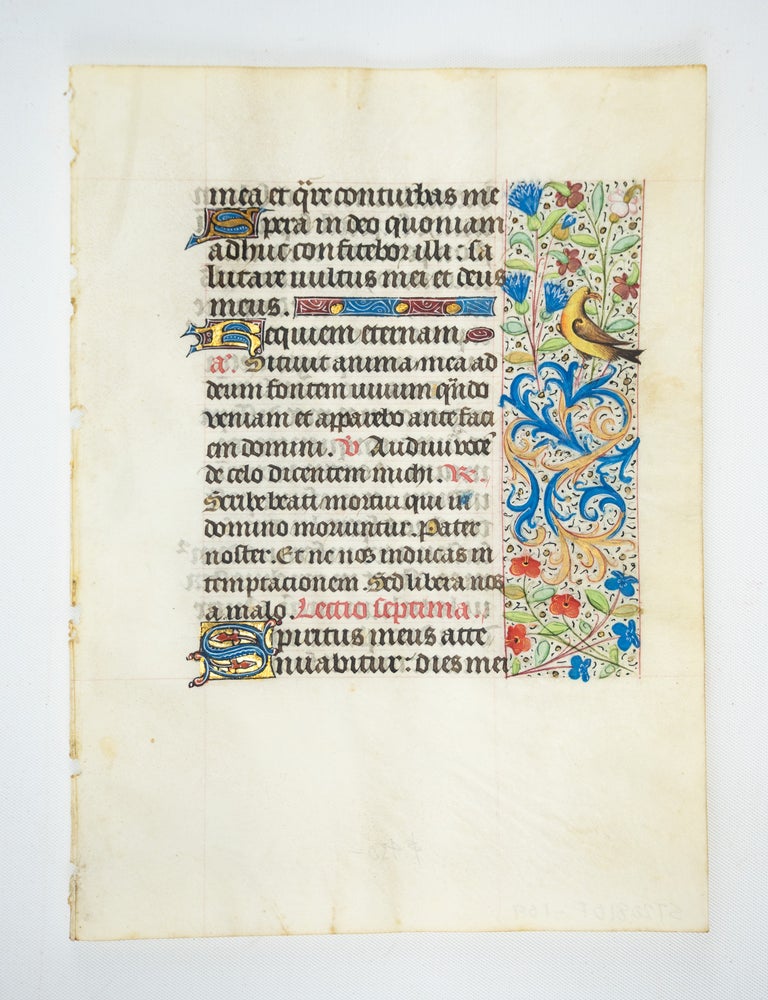 mea et q̈re conturbas me
Spera in deo quoniam
adhuc confitebor illi : sa
lutare uultus mei et deus
meus.
Requiem eternam
añ. Sitiuit anima mea ad
deum fontem uiuum q̈ndo
veniam et apparebo ante faci
em domini. V Audiui uocē
de celo dicentem michi. R.
Scribe beati mortui qui in
domino moriuntur. Pater
noster. Et ne nos inducas in
temptacionem. Sed libera nos
a malo. Lectio septima.
Spiritus meus atte
nuabitur : dies mei